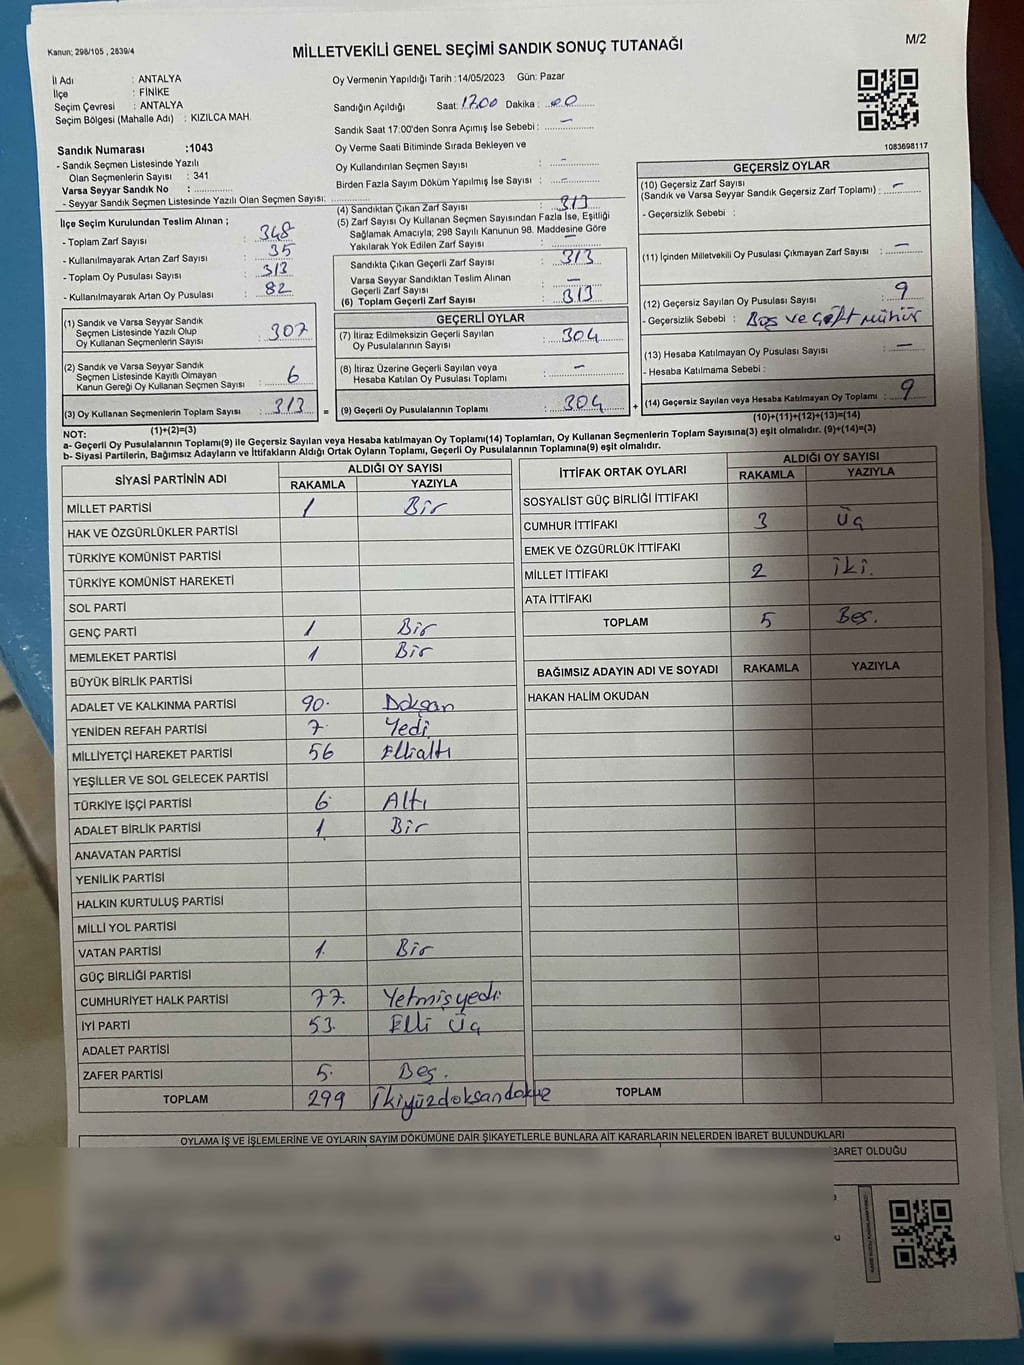 Kanun; 298/105 , 2839/4
MİLLETVEKİLİ GENEL SEÇİMİ SANDIK SONUÇ TUTANAĞI
M/2
İl Adı : ANTALYA
İlçe : FİNİKE
Seçim Çevresi : ANTALYA
Seçim Bölgesi (Mahalle Adı) : KIZILCA MAH.
Sandık Numarası :1043
- Sandık Seçmen Listesinde Yazılı
Olan Seçmenlerin Sayısı : 341
Varsa Seyyar Sandık No : ............
- Seyyar Sandık Seçmen Listesinde Yazılı Olan Seçmen Sayısı: ............
Oy Vermenin Yapıldığı Tarih :14/05/2023 Gün: Pazar
Sandığın Açıldığı Saat: 17.00 Dakika : 00
Sandık Saat 17:00'den Sonra Açmış İse Sebebi : –
Oy Verme Saati Bitiminde Sırada Bekleyen ve
Oy Kullandırılan Seçmen Sayısı : –
Birden Fazla Sayım Döküm Yapılmış İse Sayısı : –
1083698117
İlçe Seçim Kurulundan Teslim Alınan ;
- Toplam Zarf Sayısı : 348
- Kullanılmayarak Artan Zarf Sayısı : 35
- Toplam Oy Pusulası Sayısı : 313
- Kullanılmayarak Artan Oy Pusulası : 82
(1) Sandık ve Varsa Seyyar Sandık
Seçmen Listesinde Yazılı Olup
Oy Kullanan Seçmenlerin Sayısı : 307
(2) Sandık ve Varsa Seyyar Sandık
Seçmen Listesinde Kayıtlı Olmayan
Kanun Gereği Oy Kullanan Seçmen Sayısı : 6
(3) Oy Kullanan Seçmenlerin Toplam Sayısı : 313 =
(1)+(2)=(3)
(4) Sandıktan Çıkan Zarf Sayısı : 313
(5) Zarf Sayısı Oy Kullanan Seçmen Sayısından Fazla İse, Eşitliği
Sağlamak Amacıyla; 298 Sayılı Kanunun 98. Maddesine Göre
Yakılarak Yok Edilen Zarf Sayısı : –
Sandıkta Çıkan Geçerli Zarf Sayısı : 313
Varsa Seyyar Sandıktan Teslim Alınan
Geçerli Zarf Sayısı : –
(6) Toplam Geçerli Zarf Sayısı : 313
GEÇERLİ OYLAR
(7) İtiraz Edilmeksizin Geçerli Sayılan
Oy Pusulalarının Sayısı : 304
(8) İtiraz Üzerine Geçerli Sayılan veya
Hesaba Katılan Oy Pusulası Toplamı : –
(9) Geçerli Oy Pusulalarının Toplamı : 304 +
GEÇERSİZ OYLAR
(10) Geçersiz Zarf Sayısı
(Sandık ve Varsa Seyyar Sandık Geçersiz Zarf Toplamı) : –
- Geçersizlik Sebebi :
(11) İçinden Milletvekili Oy Pusulası Çıkmayan Zarf Sayısı : –
(12) Geçersiz Sayılan Oy Pusulası Sayısı : 9
- Geçersizlik Sebebi : Boş ve Çift mühür
(13) Hesaba Katılmayan Oy Pusulası Sayısı : –
- Hesaba Katılmama Sebebi :
(14) Geçersiz Sayılan veya Hesaba Katılmayan Oy Toplamı : 9
(10)+(11)+(12)+(13)=(14)
NOT:
a- Geçerli Oy Pusulalarının Toplamı(9) ile Geçersiz Sayılan veya Hesaba katılmayan Oy Toplamı(14) Toplamları, Oy Kullanan Seçmenlerin Toplam Sayısına(3) eşit olmalıdır. (9)+(14)=(3)
b- Siyasi Partilerin, Bağımsız Adayların ve İttifakların Aldığı Oyların Toplamı, Geçerli Oy Pusulalarının Toplamına(9) eşit olmalıdır.
SİYASİ PARTİNİN ADI ALDIĞI OY SAYISI
RAKAMLA YAZIYLA
MİLLET PARTİSİ 1 Bir
HAK VE ÖZGÜRLÜKLER PARTİSİ
TÜRKİYE KOMÜNİST PARTİSİ
TÜRKİYE KOMÜNİST HAREKETİ
SOL PARTİ
GENÇ PARTİ 1 Bir
MEMLEKET PARTİSİ 1 Bir
BÜYÜK BİRLİK PARTİSİ
ADALET VE KALKINMA PARTİSİ 90. Doksan
YENİDEN REFAH PARTİSİ 7. Yedi
MİLLİYETÇİ HAREKET PARTİSİ 56 Ellialtı
YEŞİLLER VE SOL GELECEK PARTİSİ
TÜRKİYE İŞÇİ PARTİSİ 6. Altı
ADALET BİRLİK PARTİSİ 1. Bir
ANAVATAN PARTİSİ
YENİLİK PARTİSİ
HALKIN KURTULUŞ PARTİSİ
MİLLİ YOL PARTİSİ
VATAN PARTİSİ 1. Bir
GÜÇ BİRLİĞİ PARTİSİ
CUMHURİYET HALK PARTİSİ 77. Yetmişyedi
İYİ PARTİ 53. Elli Üç
ADALET PARTİSİ
ZAFER PARTİSİ 5. Beş.
TOPLAM 299 İkiyüzdoksandokuz
İTTİFAK ORTAK OYLARI ALDIĞI OY SAYISI
RAKAMLA YAZIYLA
SOSYALİST GÜÇ BİRLİĞİ İTTİFAKI
CUMHUR İTTİFAKI 3 Üç
EMEK VE ÖZGÜRLÜK İTTİFAKI
MİLLET İTTİFAKI 2 iki.
ATA İTTİFAKI
TOPLAM 5 Beş.
BAĞIMSIZ ADAYIN ADI VE SOYADI RAKAMLA YAZIYLA
HAKAN HALİM OKUDAN
TOPLAM
OYLAMA İŞ VE İŞLEMLERİNE VE OYLARIN SAYIM DÖKÜMÜNE DAİR ŞİKAYETLERLE BUNLARA AİT KARARLARIN NELERDEN İBARET BULUNDUKLARI
BARET OLDUĞU